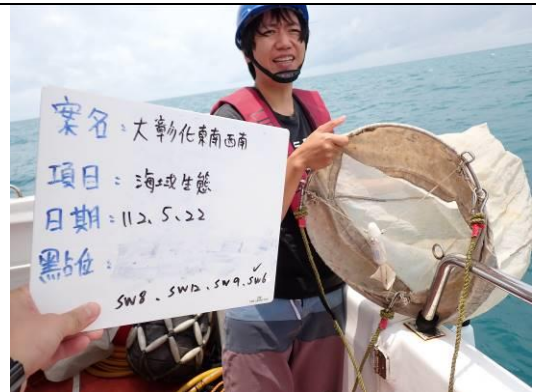 案名：大彰化東南西南
項目：海域生態
日期：112.5.22
點位：
SW8、SW12、SW9、SW6